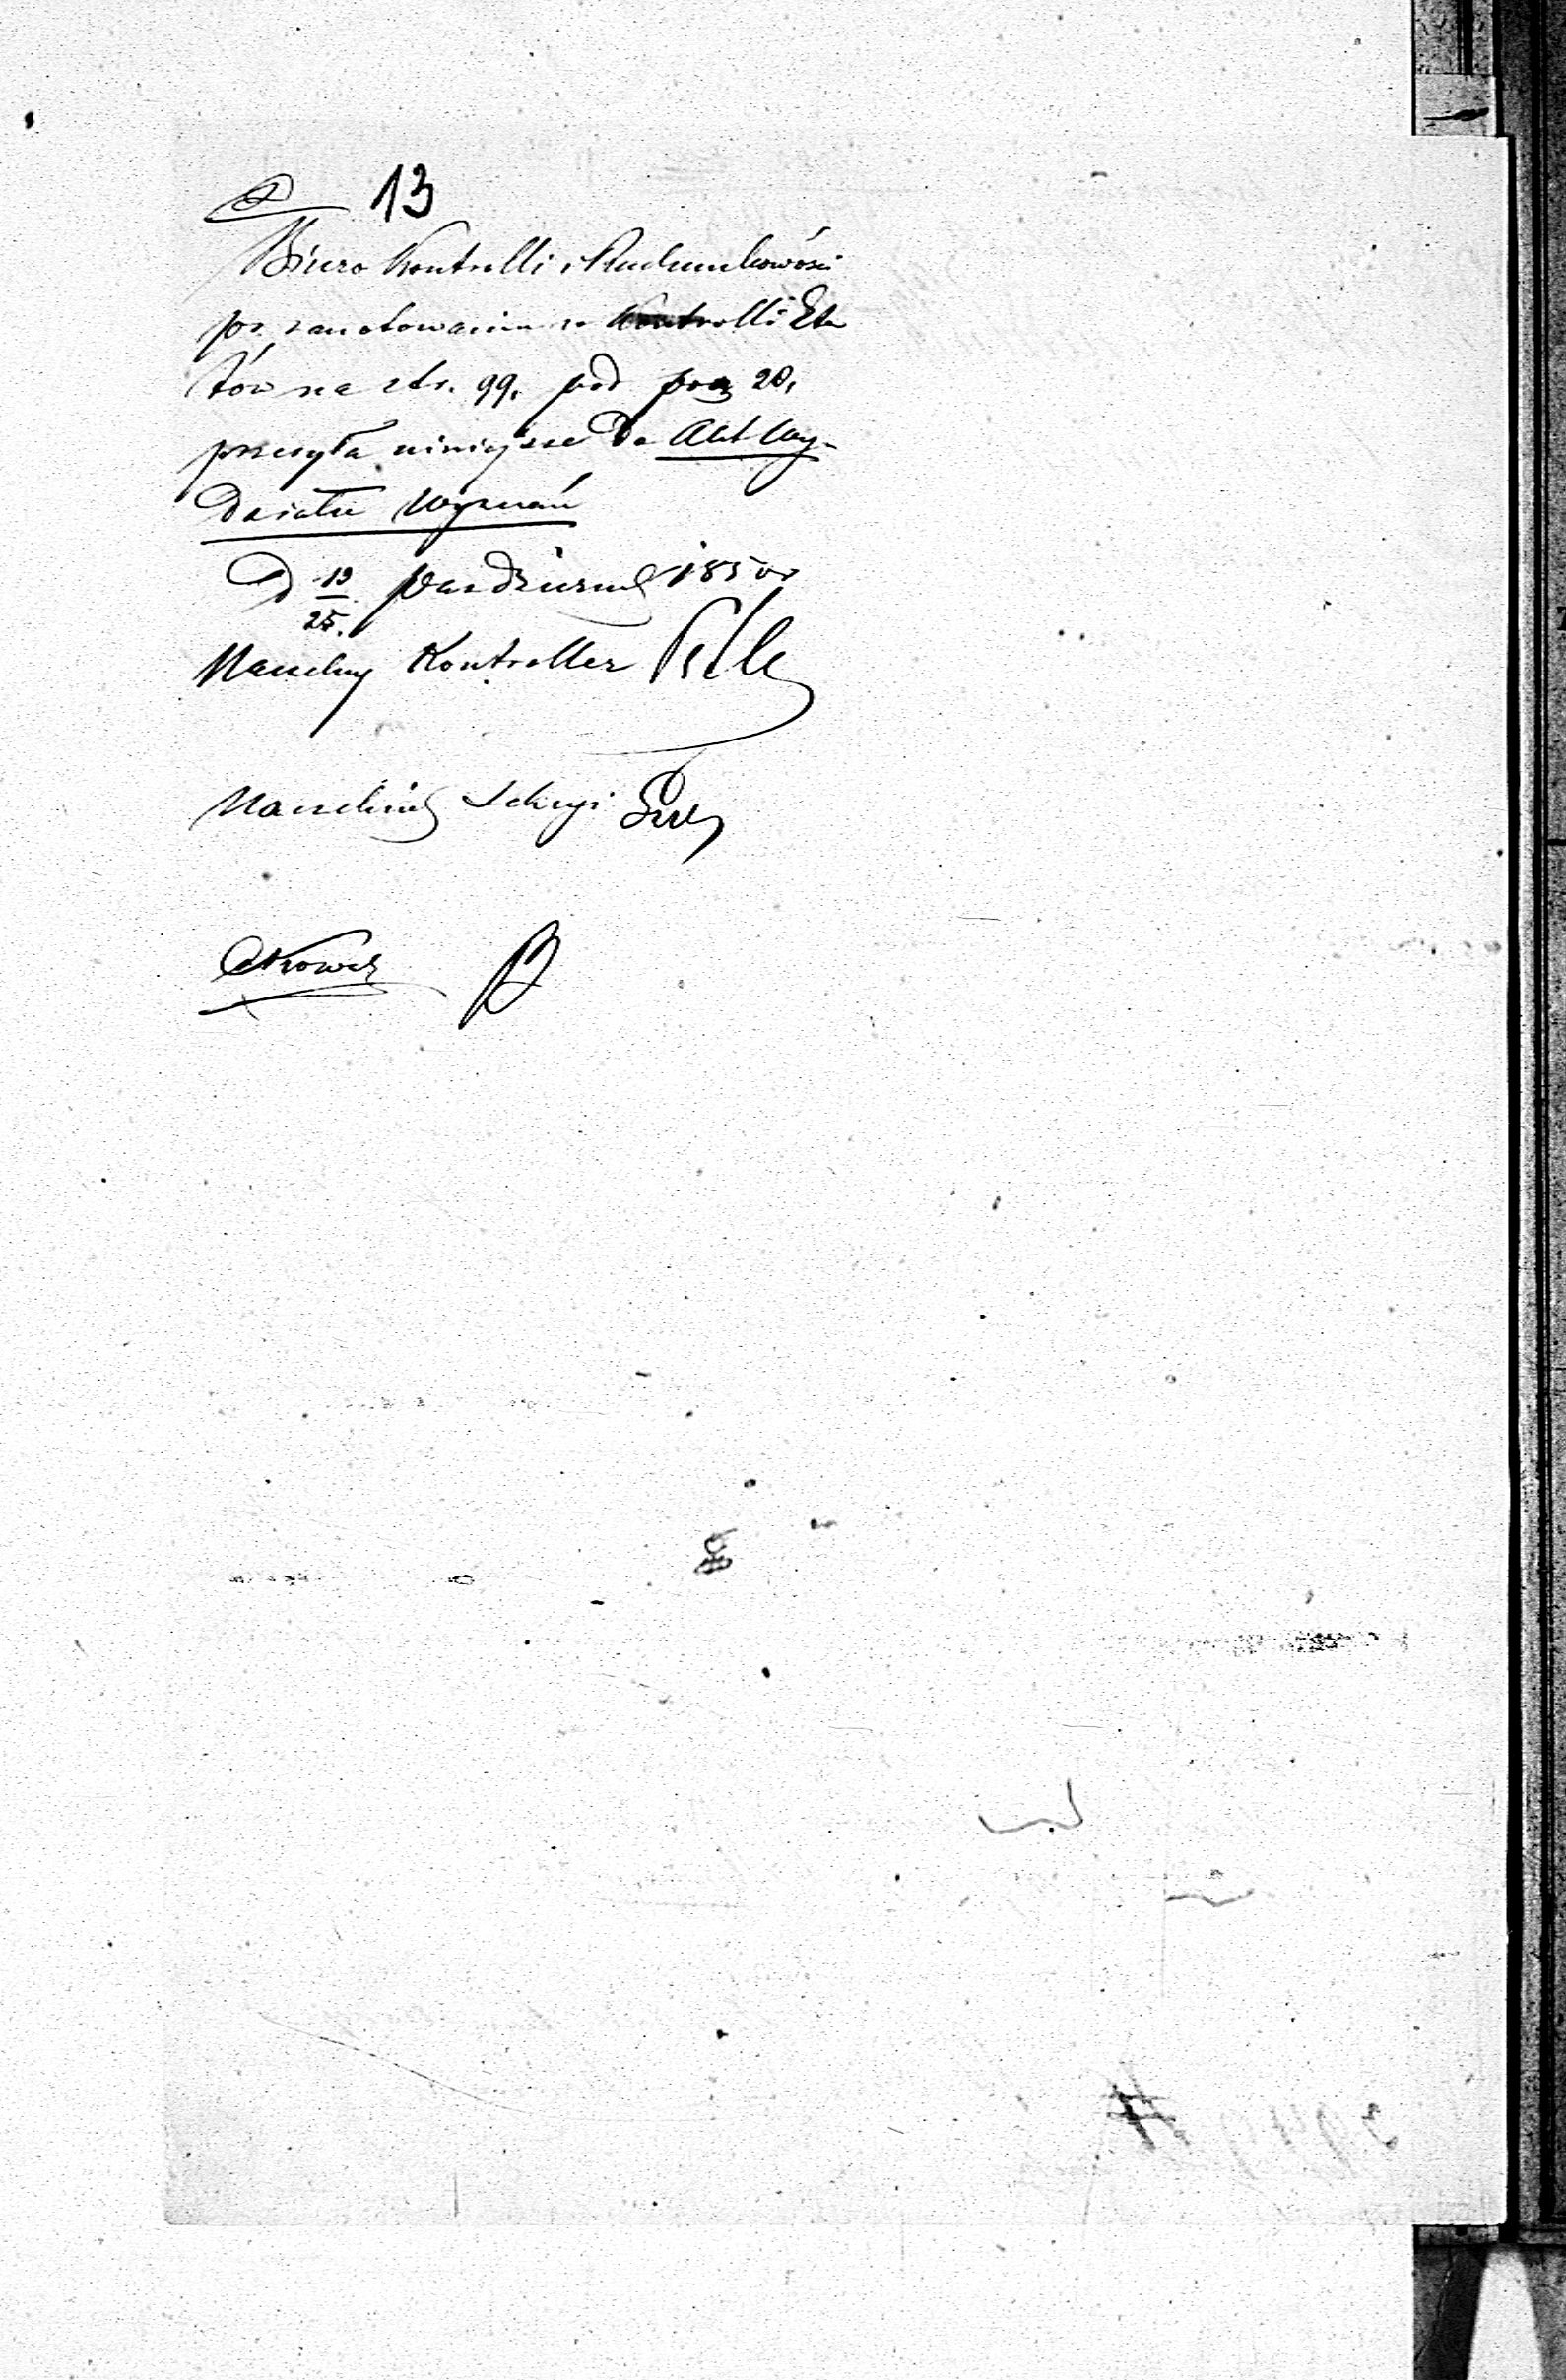 13
Biuro Kontrolli i Rachunkowości
po zanotowaniu w Kontrolli Eta
tów na str. 99. pod poz 20,
przesyła niniejsze do Akt Wy-
działu Wyznań
D 13/25. Października 185
Naczelny Kontroller
Naczelnik Sekcyi